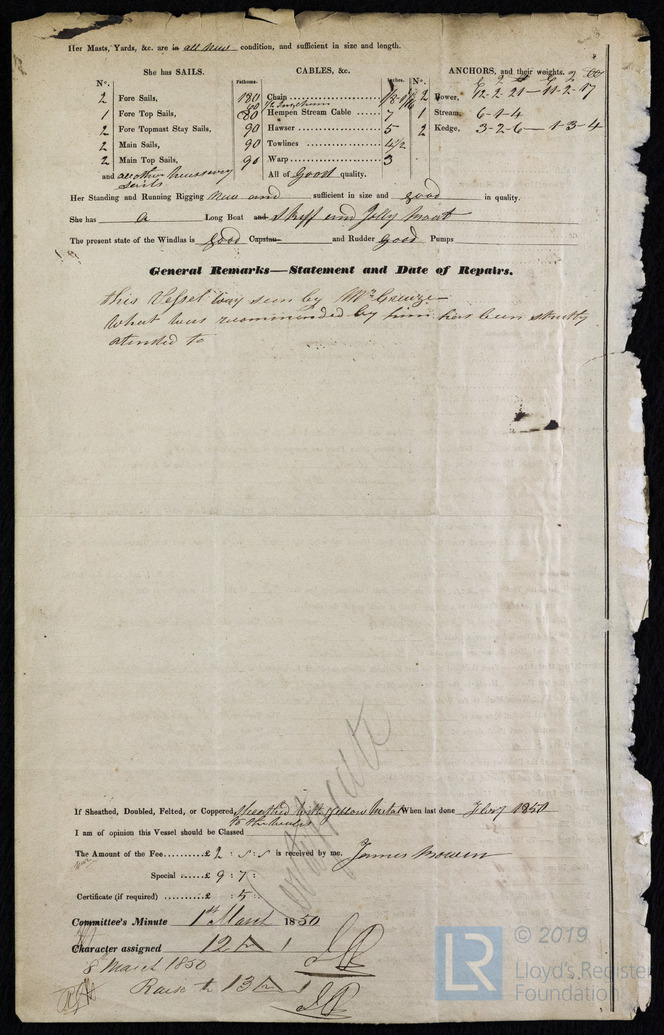 Her Masts, Yards, &c. are in all new condition, and sufficient in size and length.
She has SAILS. CABLES, &c. ANCHORS, and their weights.
N°. Fathoms. Inches. N°.
2 Fore Sails, 180 Chain 2 Bower, 12-2-21 — 11-2-17
1 Fore Top Sails, 80 Hempen Stream Cable 7 1 Stream, 6-1-4
2 Fore Topmast Stay Sails, 90 Hawser 5 2 Kedge, 3-2-6 — 1-3-4
2 Main Sails, 90 Towlines 4½
2 Main Top Sails, 90 Warp 3
and all other necessary sails All of Good quality.
Her Standing and Running Rigging new and sufficient in size and good in quality.
She has a Long Boat and Skiff and Jolly boat
The present state of the Windlas is good Capstan and Rudder good Pumps
General Remarks—Statement and Date of Repairs.
this Vessel was seen by Mr Creuze
What was recommended by him has been strictly
atended to
If Sheathed, Doubled, Felted, or Coppered, Sheathed with Yellow Metal When last done Feby 1850
I am of opinion this Vessel should be Classed
The Amount of the Fee.........£ 2 : 5 : 5 is received by me, James Bowen
Special ......£ 9 : 7 :
Certificate (if required) .........£ : 5 :
Certificate
Committee's Minute 1st March 1850
Character assigned 12 A 1
8 March 1850
Raise to 13 A 1
LR © 2019
Lloyd's Register
Foundation